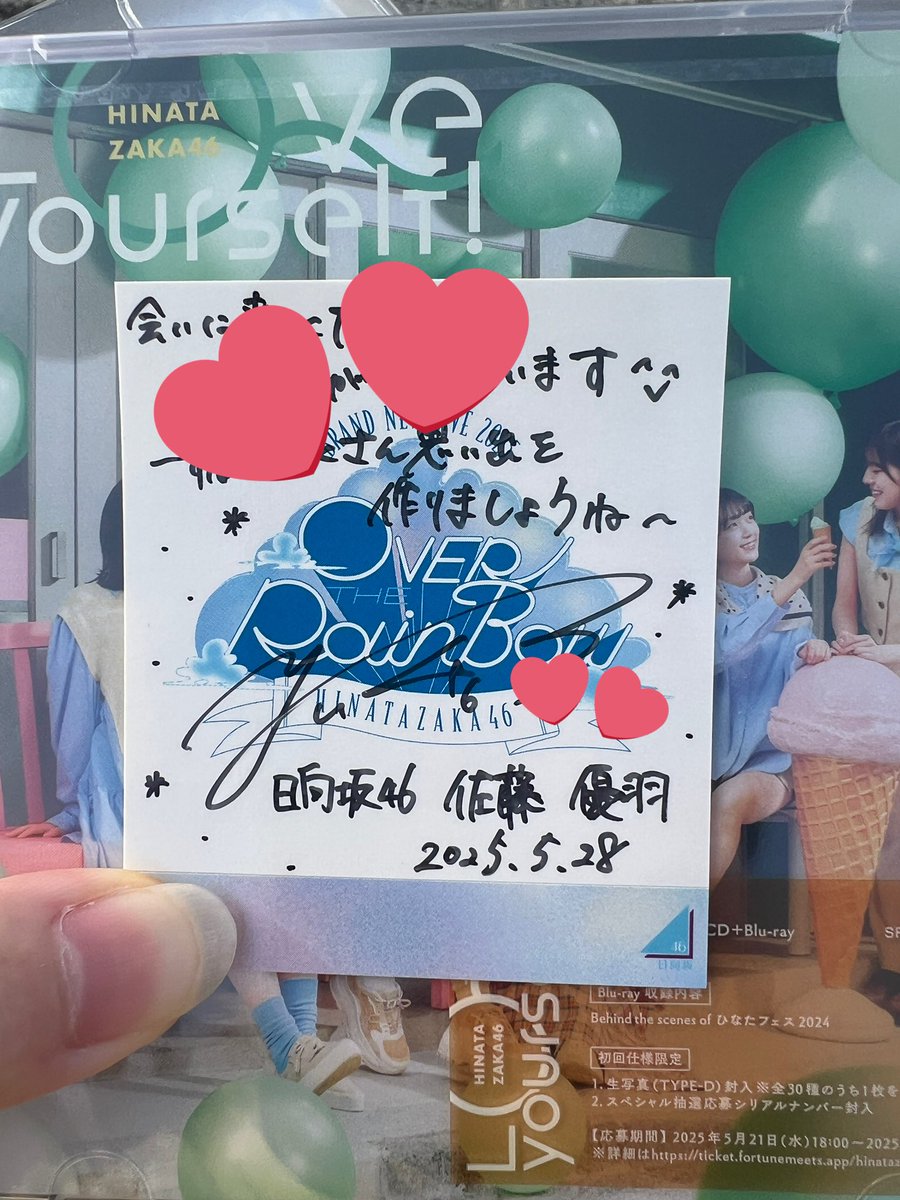 HINATA
ZAKA46
ve
Yourself!
会いに
います
さん思い出を
作りましょうね〜
OVER
THE
RainBow
HINATAZAKA46
日向坂46 佐藤 優羽
2025.5.28
46
日向坂
CD+Blu-ray
Blu-ray 収録内容
Behind the scenes of ひなたフェス2024
初回仕様限定
1.生写真(TYPE-D)封入 ※全30種のうち1枚を
2.スペシャル抽選応募シリアルナンバー封入
【応募期間】2025年5月21日(水)18:00〜2025
※詳細はhttps://ticket.fortunemeets.app/hinataz
HINATA
ZAKA46